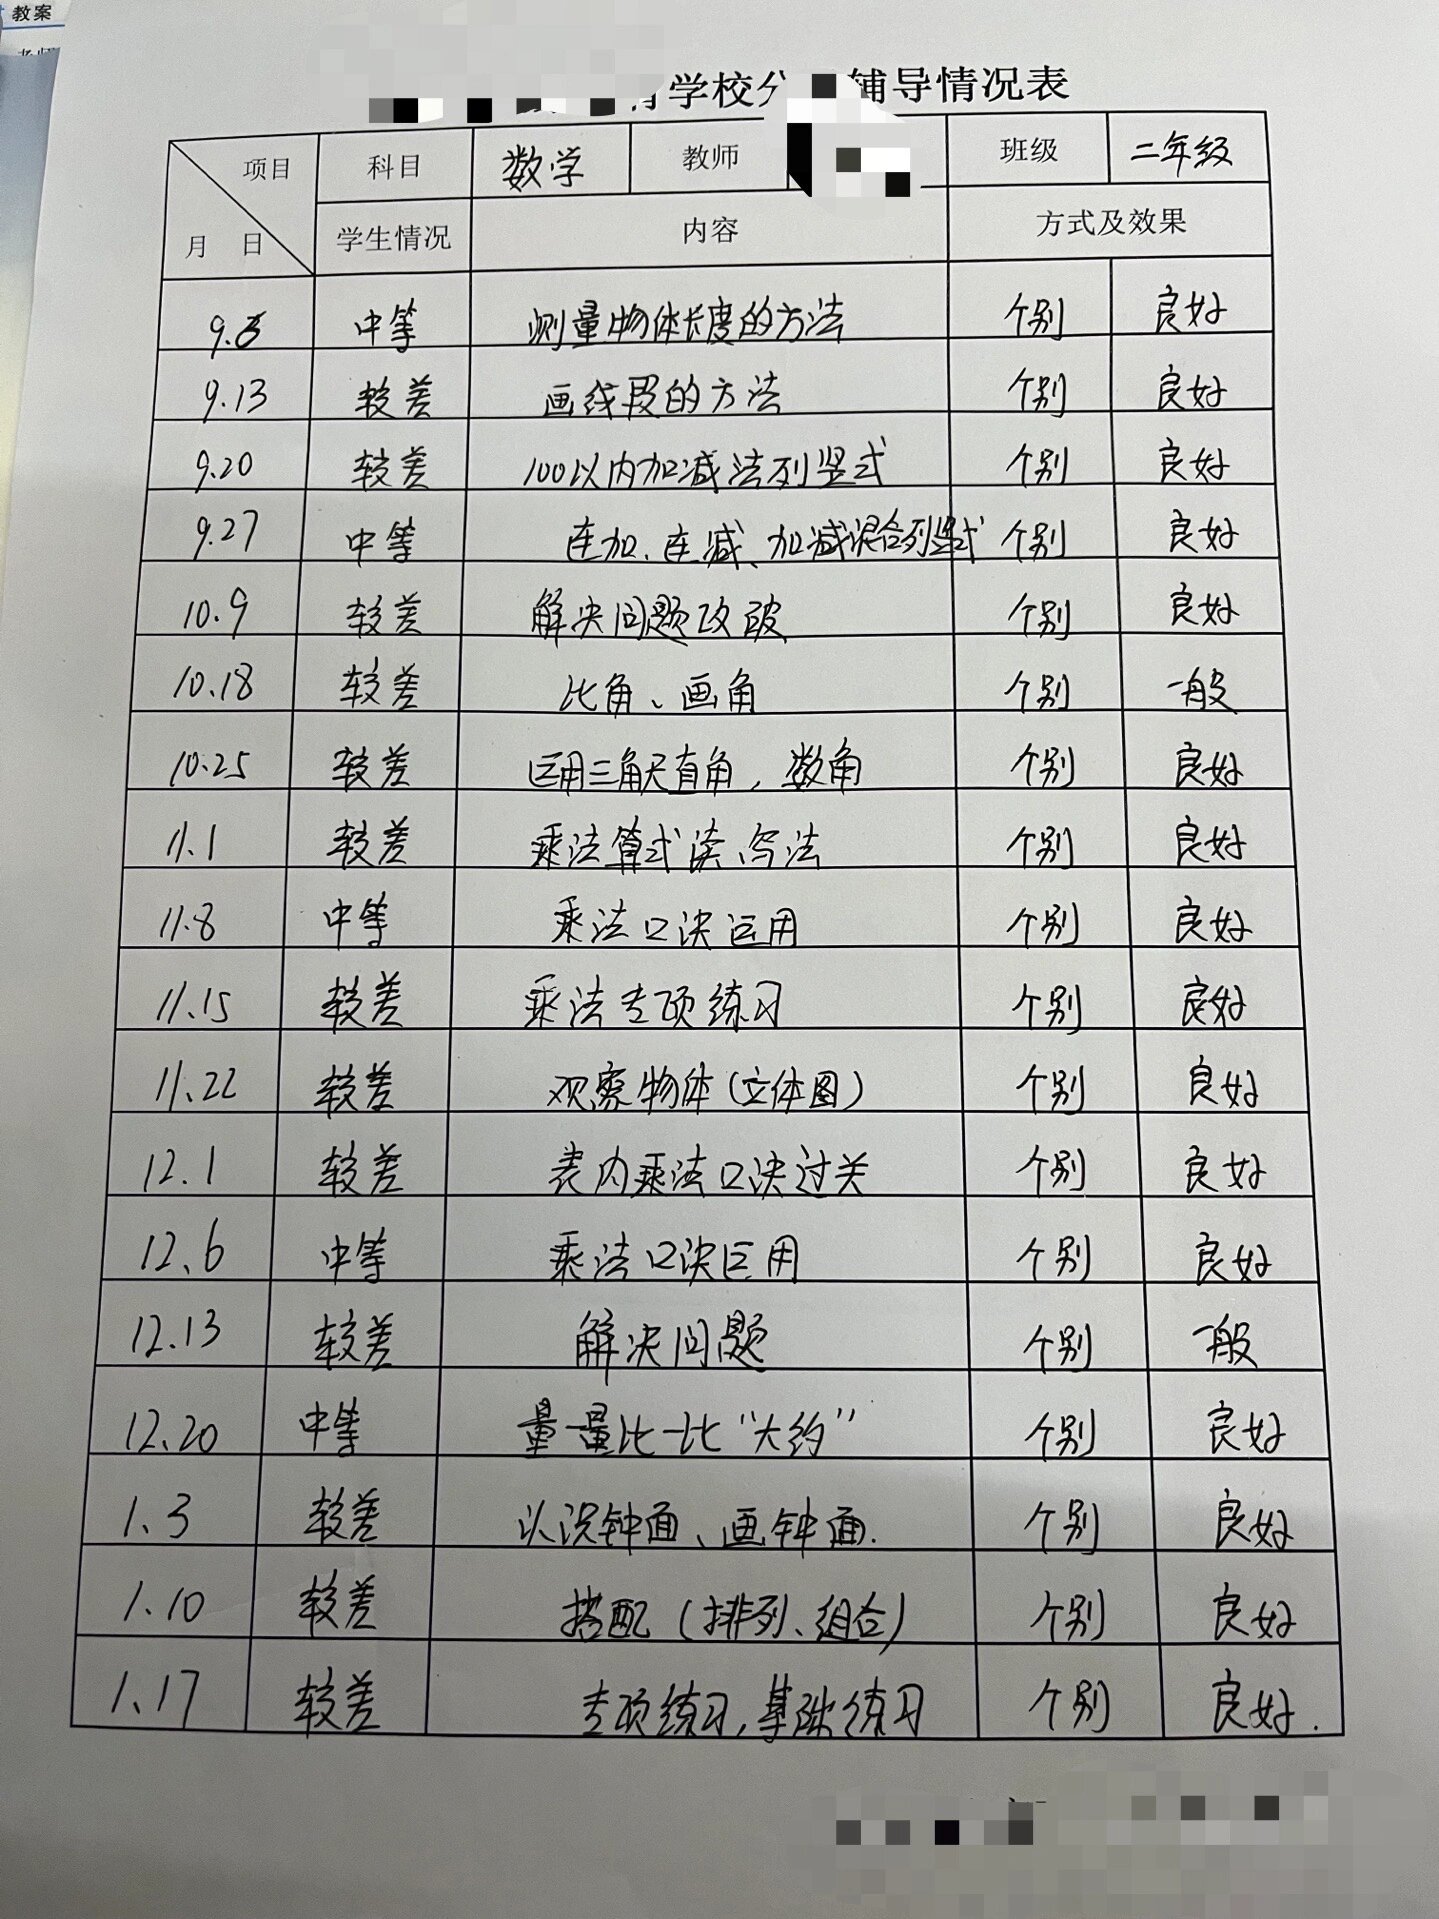 教案
学校分 辅导情况表
项目 科目 数学 教师 班级 二年级
月 日 学生情况 内容 方式及效果
中等 测量物体长度的方法 个别 良好
9.13 较差 画线段的方法 个别 良好
9.20 较差 100以内加减法列竖式 个别 良好
9.27 中等 连加、连减、加减混合列竖式 个别 良好
10.9 较差 解决问题改 个别 良好
10.18 较差 比角、画角 个别 一般
10.25 较差 运用三角尺直角，数角 个别 良好
11.1 较差 乘法算式读、写法 个别 良好
11.8 中等 乘法口决运用 个别 良好
11.15 较差 乘法专项练习 个别 良好
11.22 较差 观察物体(立体图) 个别 良好
12.1 较差 表内乘法口决过关 个别 良好
12.6 中等 乘法口决运用 个别 良好
12.13 较差 解决问题 个别 一般
12.20 中等 量一量比一比“大约” 个别 良好
1.3 较差 认识钟面、画钟面. 个别 良好
1.10 较差 搭配(排列、组合) 个别 良好
1.17 较差 专项练习,基础练习 个别 良好.